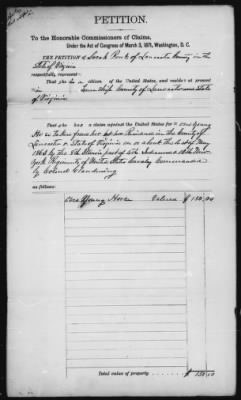 PETITION.
To the Honorable Commissioners of Claims,
Under the Act of Congress of March 3, 1871, Washington, D. C.
THE PETITION of Sarah of Lancaster County in the
State of Virginia
respectfully represents:
That she is a citizen of the United States, and resides at present
in County of Lancaster and State
of Virginia
That she has a claim against the United States for a Young
Horse taken from her at her Residence in the County of
Lancaster & State of Virginia on or about the 1st day of May
1863 by the 8th Illinois part of 12th New
York Regiments of United States Cavalry Commanded
by Colonel
as follows:
One Young Horse Valued $ 150.00
Total value of property $150.00